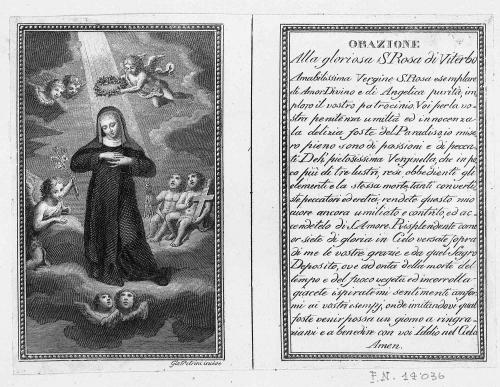 ORAZIONE
Alla gloriosa S. Rosa di Viterbo
Amabilissima Vergine S. Rosa esemplare
di Amor Divino e di Angelica purità, im-
ploro il vostro patrocinio. Voi per la vo-
stra penitenza umiltà ed innocenza
la delizia foste del Paradiso; io mise-
ro pieno sono di passioni e di pecca-
ti. Deh! pietosissima Verginella, che in po-
co più di tre lustri, resi obbedienti gli
elementi e la stessa morte, tanti converti-
ste peccatori ed eretici; rendete questo mio
cuore ancora umiliato e contrito, ed ac-
cendetelo di S. Amore. Risplendente com'
or siete di gloria in Cielo versate sopra
di me le vostre grazie e da quel Sagro
Deposito, ove ad onta della morte del
tempo e del fuoco vegeta ed incorrotta
giacete ispiratemi sentimenti confor-
mi ai vostri esempj, onde imitandovi qual
foste venir possa un giorno a ringra-
ziarvi e a benedire con voi Iddio nel Cielo
Amen.
Gio. Petrini incise
F.N. 14036